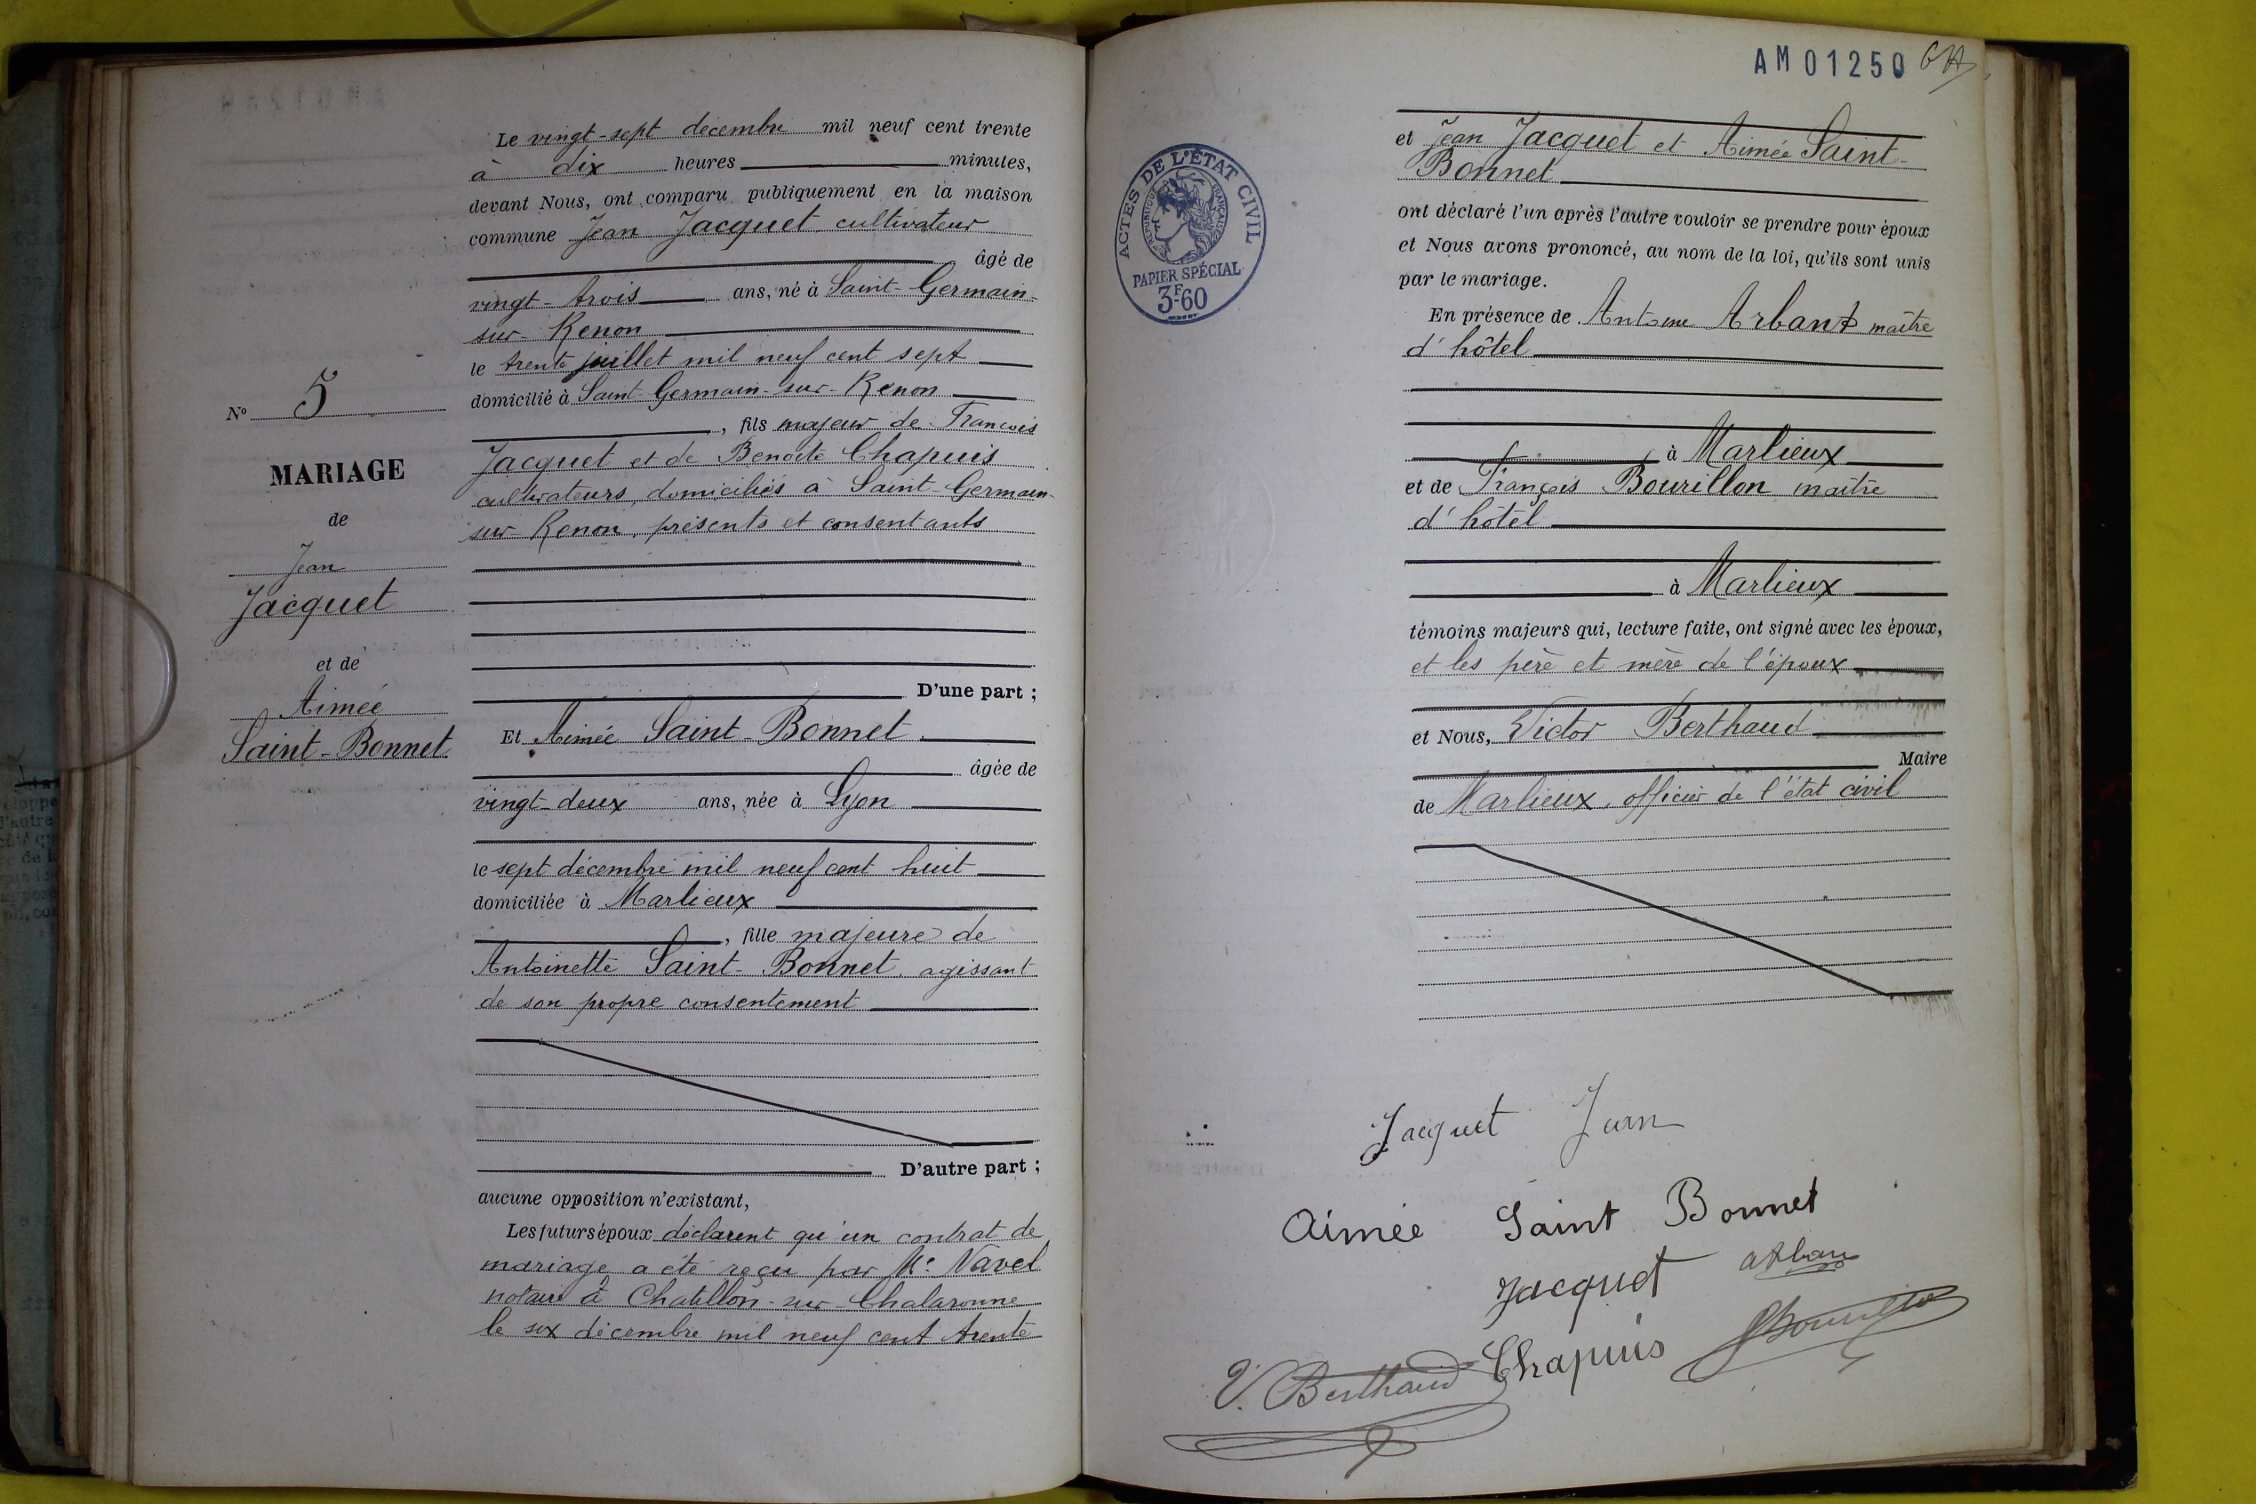 Le vingt-sept décembre mil neuf cent trente
à dix heures minutes,
devant Nous, ont comparu publiquement en la maison
commune Jean Jacquet cultivateur
âgé de
vingt-trois ans, né à Saint-Germain-
sur-Renon
le trente juillet mil neuf cent sept
domicilié à Saint-Germain-sur-Renon
, fils majeur de François
Jacquet et de Benoîte Chapuis
cultivateurs, domiciliés à Saint-Germain-
sur-Renon, présents et consentants
D'une part ;
Et Aimée Saint-Bonnet
âgée de
vingt-deux ans, née à Lyon
le sept décembre mil neuf cent huit
domiciliée à Marlieux
, fille majeure de
Antoinette Saint-Bonnet agissant
de son propre consentement
D'autre part ;
aucune opposition n'existant,
Les futurs époux déclarent qu'un contrat de
mariage a été reçu par Me Navel
notaire à Chatillon-sur-Chalaronne
le six décembre mil neuf cent trente
No 5
MARIAGE
de
Jean
Jacquet
et de
Aimée
Saint-Bonnet
AM01250
et Jean Jacquet et Aimée Saint-
Bonnet
ont déclaré l'un après l'autre vouloir se prendre pour époux
et Nous avons prononcé, au nom de la loi, qu'ils sont unis
par le mariage.
En présence de Antoine Arbant maître
d'hôtel
à Marlieux
et de François Bourillon maître
d'hôtel
à Marlieux
témoins majeurs qui, lecture faite, ont signé avec les époux,
et les père et mère de l'époux
et Nous, Victor Berthaud
Maire
de Marlieux, officier de l'état civil
ACTES DE L'ÉTAT CIVIL
RÉPUBLIQUE FRANÇAISE
PAPIER SPÉCIAL
3F60
Jacquet Jean
Aimée Saint Bonnet
Jacquet Arban
Chapuis Bourillon
V. Berthaud